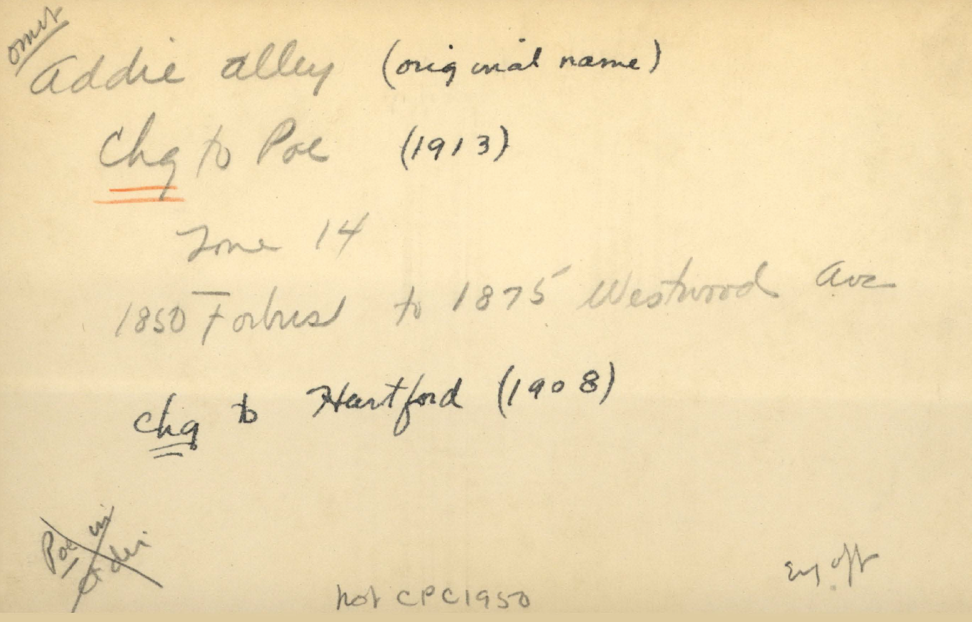 omit
Addie alley (original name)
Chg to Poe (1913)
Zone 14
1850 Forbus to 1875 Westwood Ave
chg to Hartford (1908)
Poe in order
not CPC1950